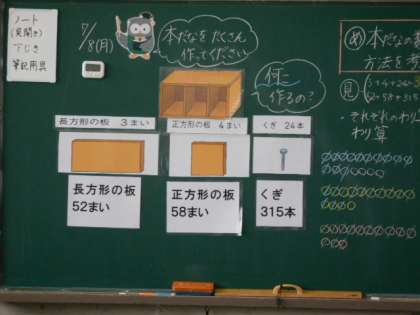 ノート
(見開き)
下じき
筆記用具
7/8(月)
本だなを たくさん
作ってください
何こ
作るの?
長方形の板 3まい
正方形の板 4まい
くぎ 24本
長方形の板
52まい
正方形の板
58まい
くぎ
315本
め 本だなの
方法を考
見
それぞれのわり
わり算